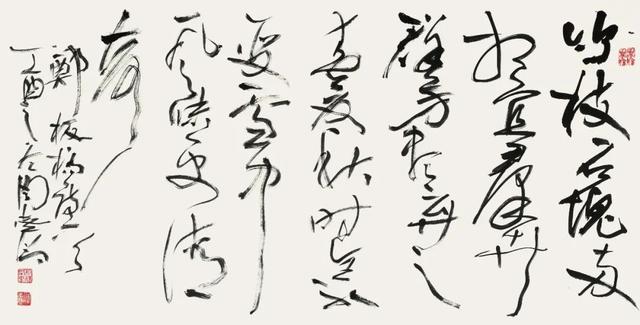 竹枝石塊兩
相宜群卉
群芳尽弃之
春夏秋时全不
变雪中
风味更清
奇
鄭板橋詩一首
丁酉之